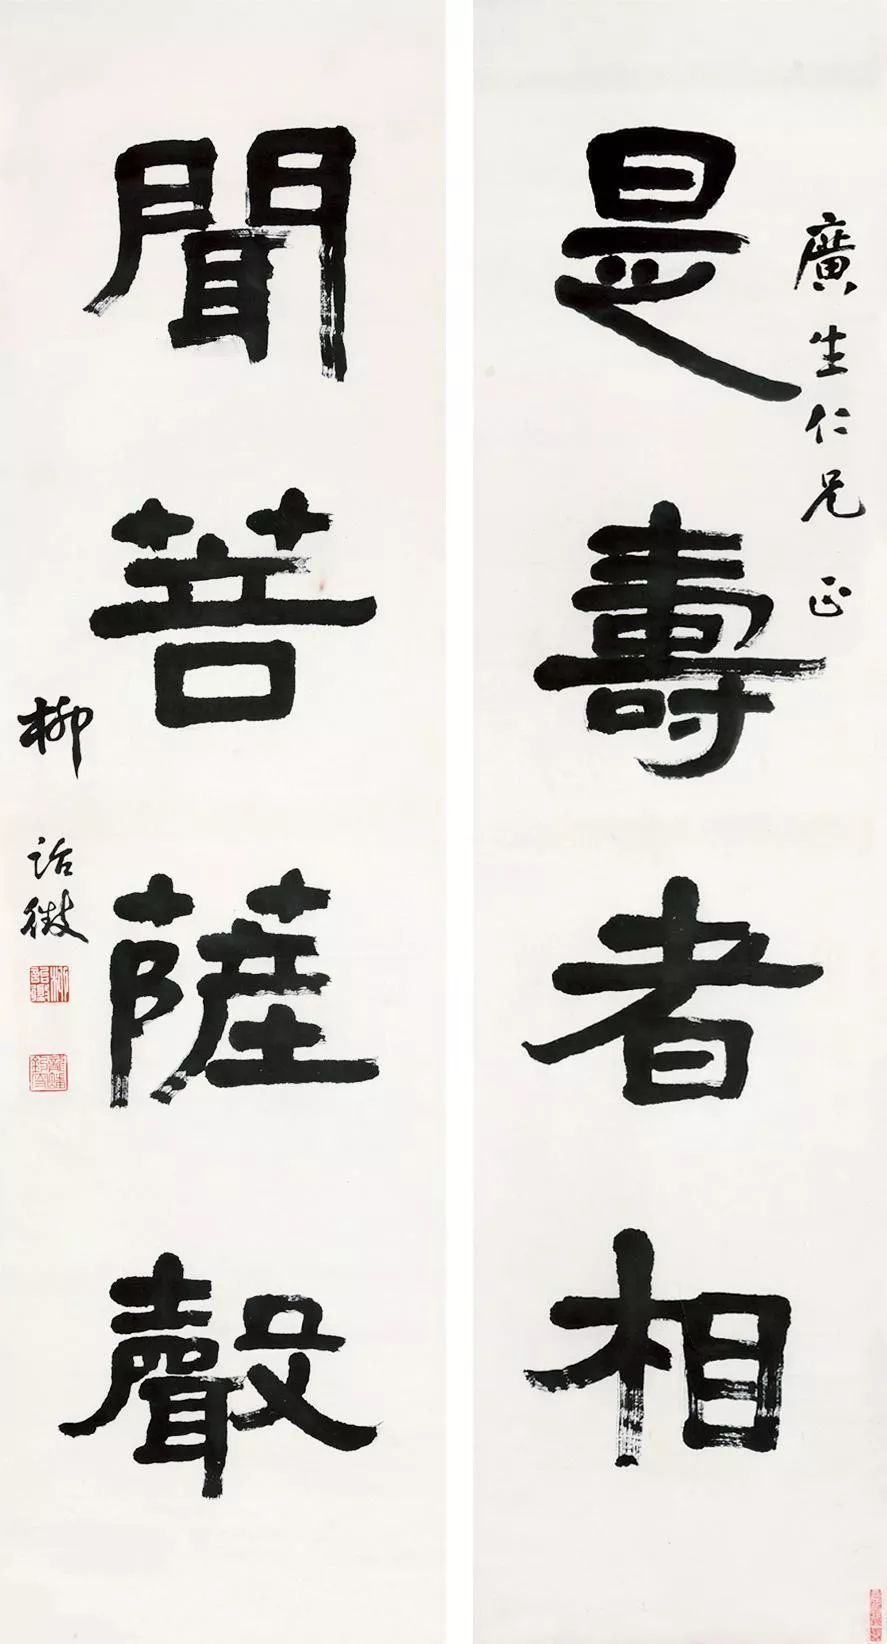 廣生仁兄正
是壽者相
聞菩薩聲
柳詒徵
柳詒徵